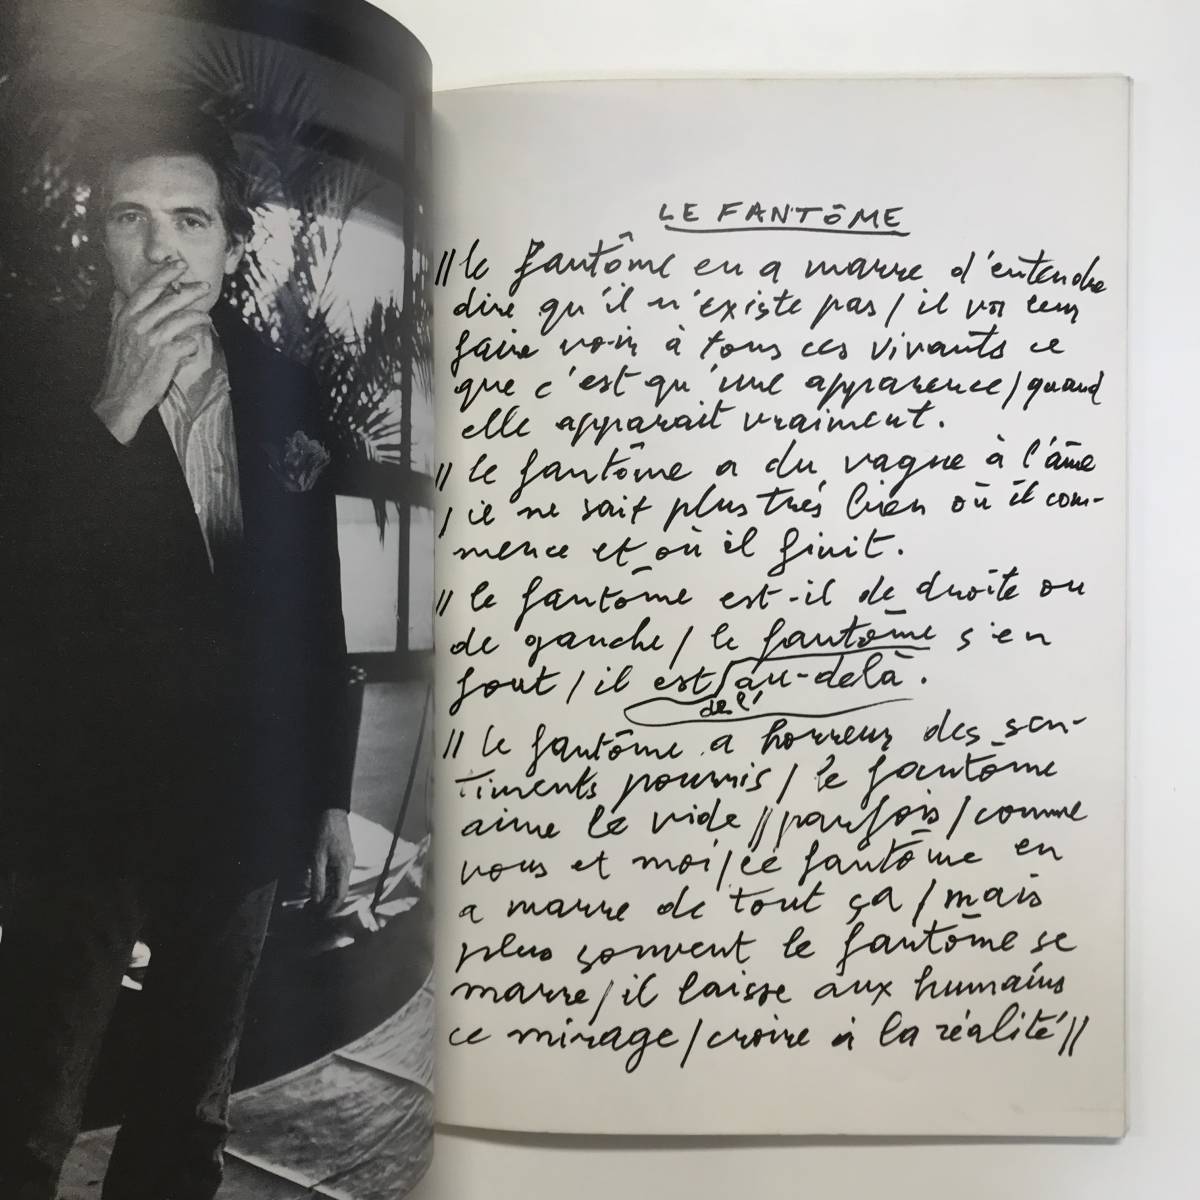 LE FANTôME
// le fantôme en a marre d'entendre
dire qu'il n'existe pas / il va leur
faire voir à tous ces vivants ce
que c'est qu'une apparence / quand
elle apparait vraiment.
// le fantôme a du vague à l'âme
/ il ne sait plus très bien où il com-
mence et où il finit.
// le fantôme est-il de droite ou
de gauche / le fantôme s'en
fout / il est au-delà.
de l'
// le fantôme a horreur des sen-
timents pourris / le fantôme
aime le vide // parfois / comme
vous et moi / le fantôme en
a marre de tout ça / mais
plus souvent le fantôme se
marre / il laisse aux humains
ce mirage / croire à la réalité //